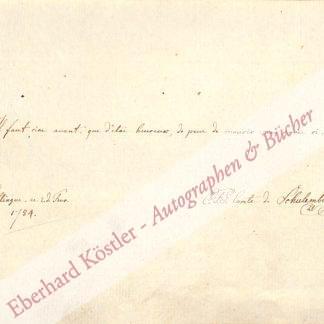 Il faut rire avant que d'être heureux, de peur de mourir
1784.
Comte de Schulemb
Eberhard Köstler - Autographen & Bücher